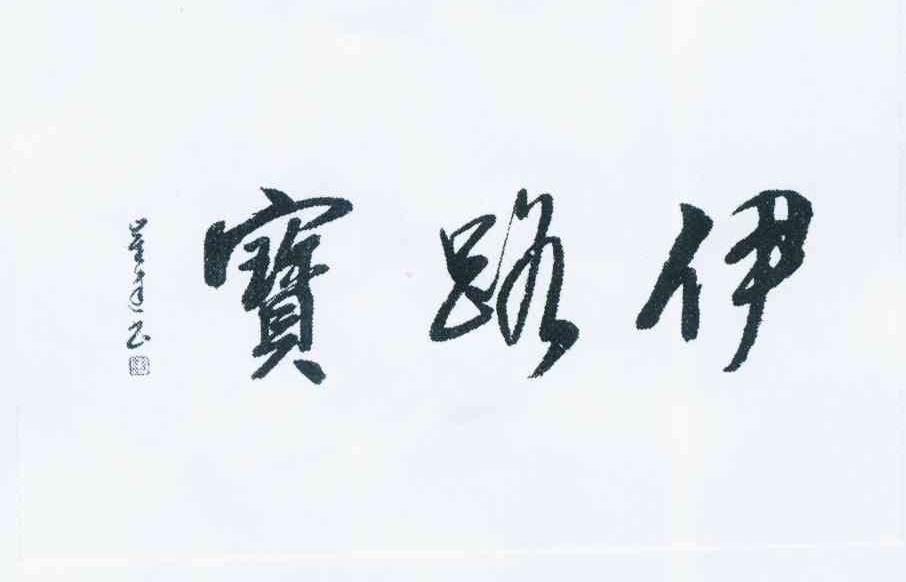 伊路寶